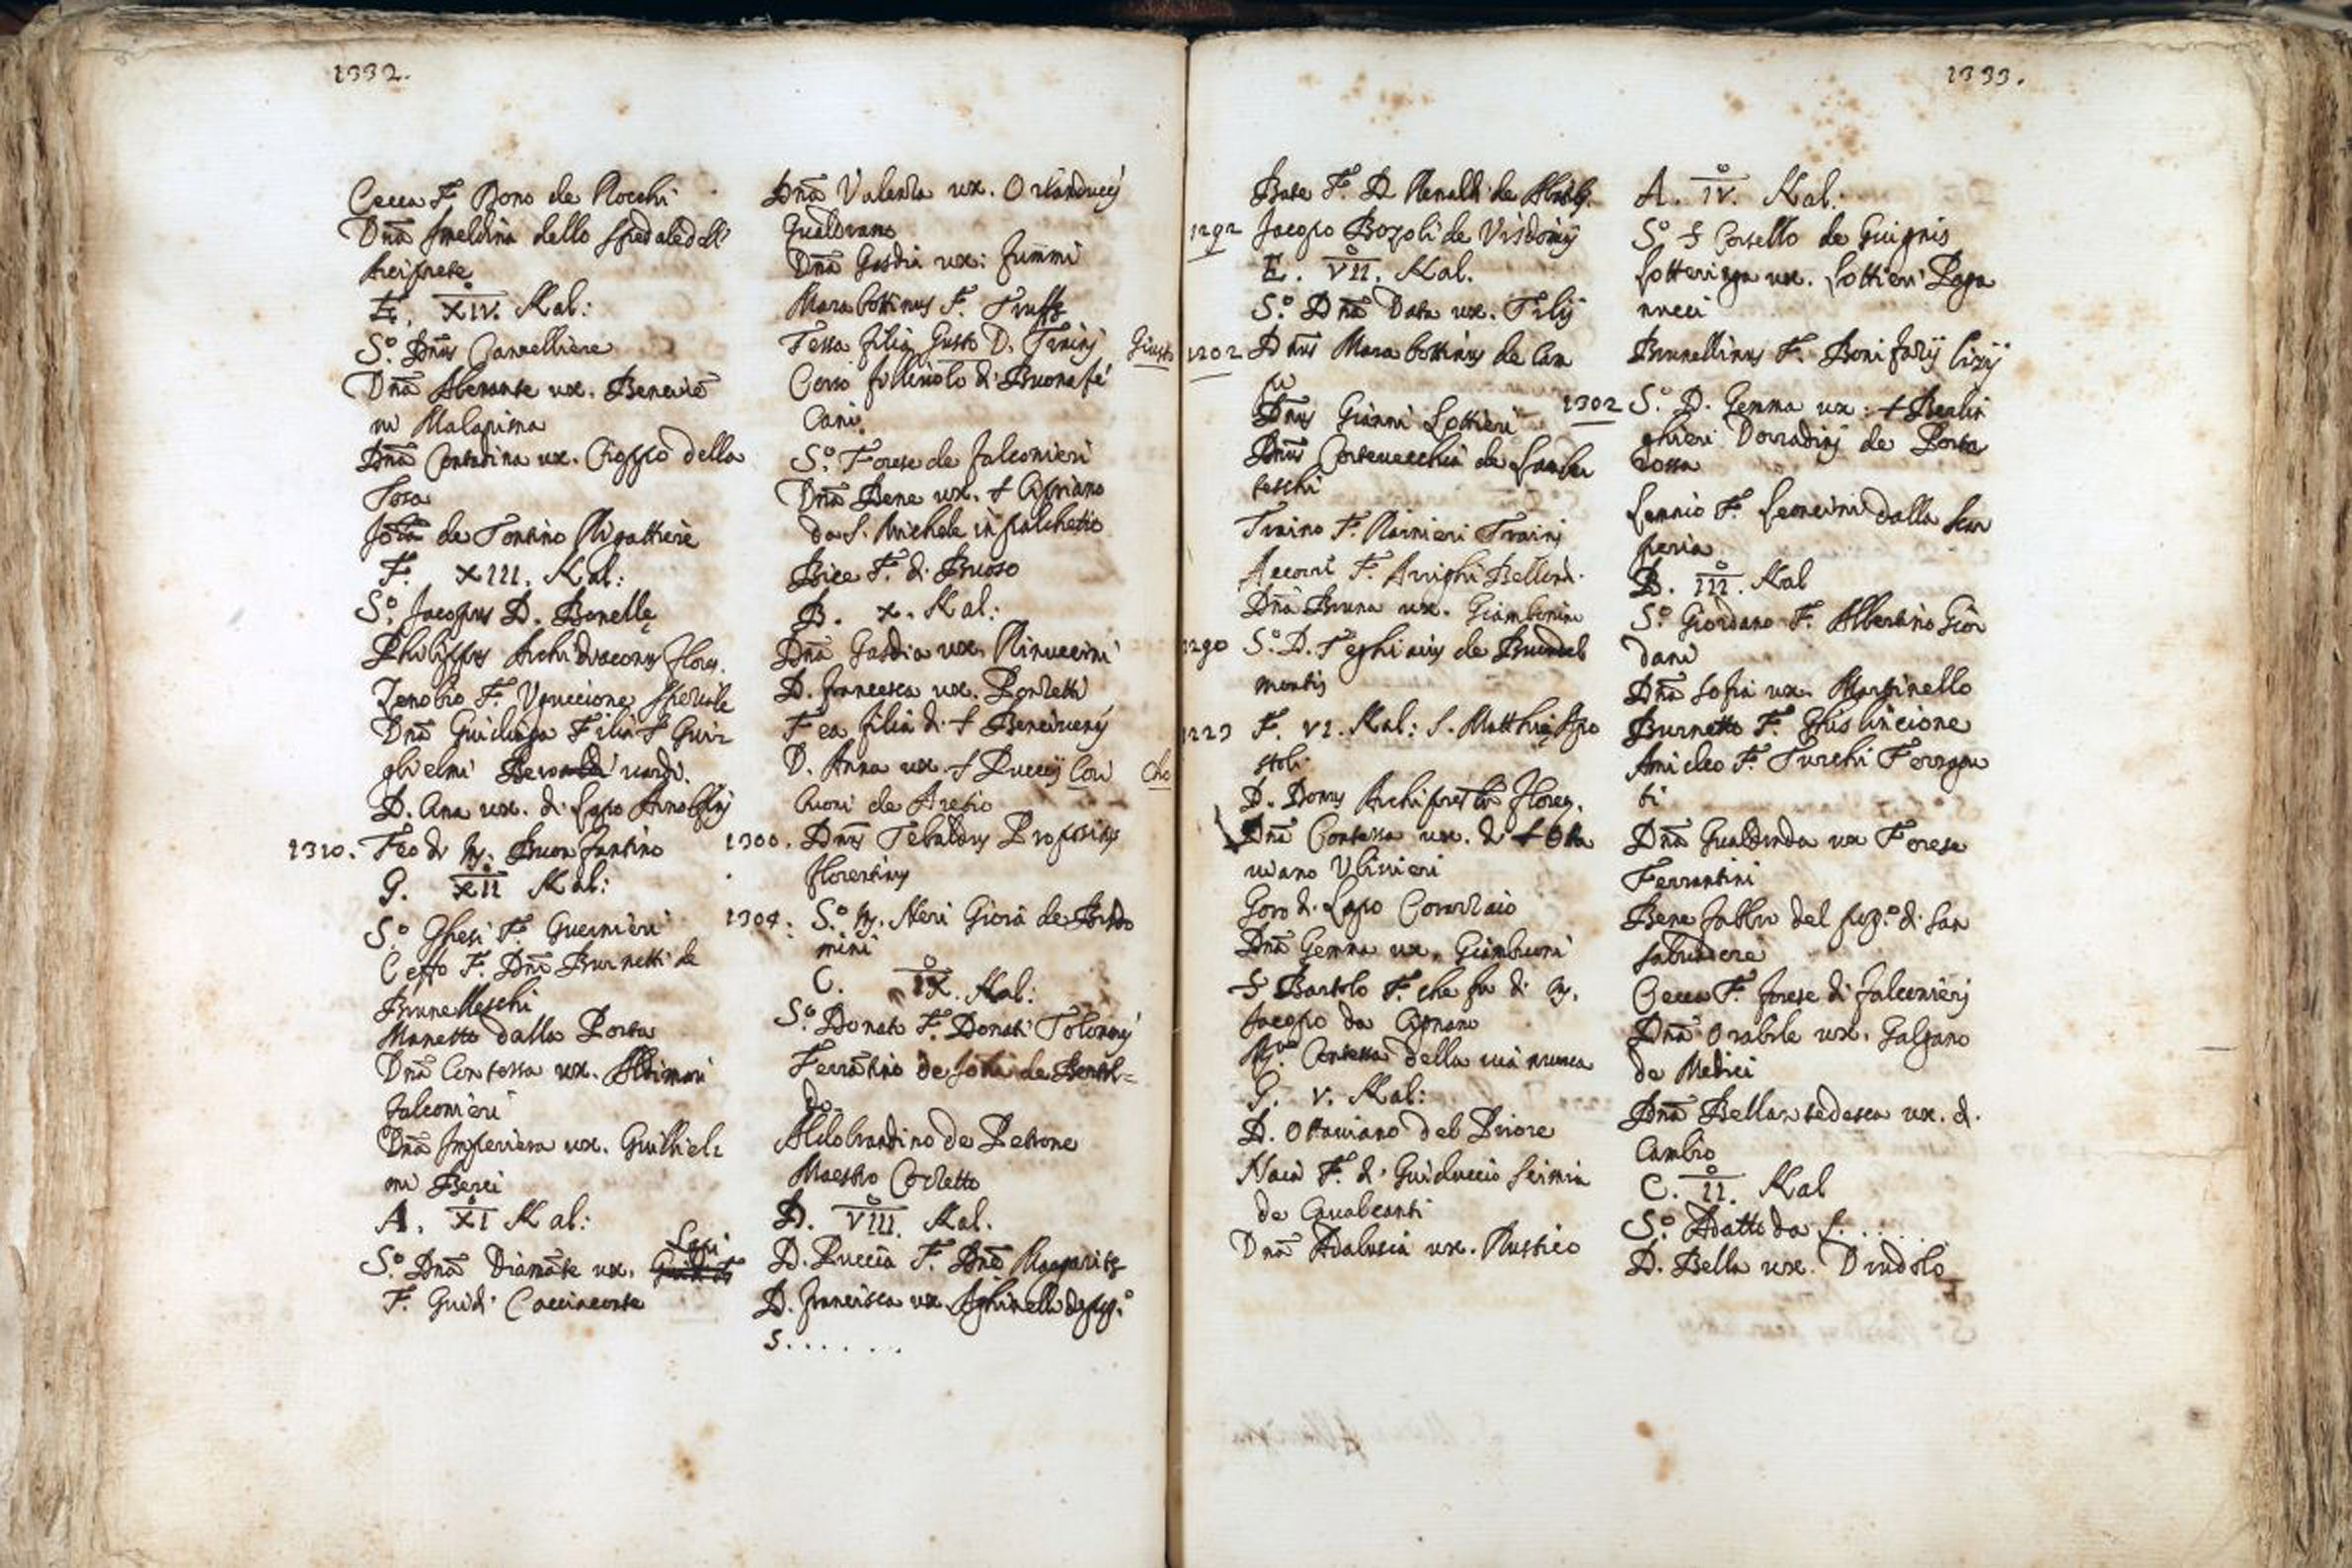 1332.
Cecca F. Bono de Rocchi
Dnã Imeldina dello Spedale dell'
Arciprete
E. XIV. Kal:
S.º Dñus Cancelliere
Dnã Aberante ux. Bencivẽ
ni Malapima
Dnã Contadina ux. Cioppo della
Tosa
Joħa de Tontino Rigattiere
F. XIII. Kal:
S.º Jacopus D. Bonellę
Philippus Archidiaconus Floren.
Zenobio F. Uguccione Speziale
Dnã Guidinga Filia S Gui=
glielmi vardi.
D. Ana ux. di Lapo Arnolfinj
1310. Feo di M. Buonfantino
G. XII Kal:
S.º Ghesi F. Guernieri
Ceffo F. Dnĩ Burnetti de
Brunelleschi
Manetto dalla Porta
Dnã Contessa ux. Aldimari
Falconieri
Dnã Imperiera ux. Guilliel=
mi Berci
A. XI Kal:
Lapi
S.º Dnã Diamãte ux.
F. Guidi Cacciaconte
Dnã Valenza ux. Orlanduccij
Gualdrano
Dnã Gasdia ux: Jummi
Marabottinus F. Truffę
Tessa filia Gusto D. Trainj Giusto
Corso figliuolo di Buonafé
Cani
S.º Forese de Falconieri
Dnã Bene ux. S Cipriano
da S. Michele in palchetto
Bice F. di Bruoso
B. X. Kal:
Dnã Gasdia ux. Rinuccini
D. Francesca ux. Ponzetti
Fea filia di S Bencivenj
D. Anna ux. S Puccij Cori Che
chuoni de Arezio
1300. Dñus Tebaldus Propositus
Florentinus
1304: S.º M. Neri Giorã de Bordo
mini
C. IX. Kal:
S.º Donato F. Donati Tolomej
Ferratino de Joħa de Bertol=
do
Aldobrandino de Petrone
Maestro Corletto
D. VIII. Kal.
D. Puccia F. Dnẽ Margaritę
D. Francisca ux. Aghinetti da pog.º
S......
1333.
Bate F. D. Renaldi de
1292 Jacopo Bozoli de Visdominj
E. VII. Kal.
S.º Dnã Data ux. Filij
1202 Dñus Marabottinus de Cam
pi
Dñus Gianni Lottieri
Dñus Cortevecchia de Lamber
teschi
Traino F. Rainieri Trainj
Accorri F. Arrighi Bellond.
Dnã Bruna ux. Giambonino
1290 S.º D. Teghiaius de Buondel
montis
1223 F. VI. Kal: S. Matthię Apo
stoli
D. Bonus Archipresbr Floren.
Dnã Contessa ux. di S Otta
viano Ulivieri
Goro di Lapo Corazzaio
Dnã Gemma ux. Giambuoni
S Bartolo F. che fu di M.
Jacopo da Cignano
M.ª Contessa della via nuova
G. V. Kal:
D. Ottaviano del Priore
Naca F. di Guiduccio Scimia
de Cavalcanti
Dnã Adalasia ux. Rustico
A. IV. Kal:
S.º S Corsello de Guignis
Lotteringa ux. Lottieri Papa
nucci
Brunellinus F. Bonifazij Lizij
1302 S.º D. Gemma ux: S Berlin
ghieri Dorradinj de Porta
rossa
Lennio F. Leoncini dalla Scar
peria
B. III. Kal
S.º Giordano F. Albertino Gior
dani
Dnã Sofia ux. Martinello
Burnetto F. Ghislincione
Amideo F. Turchi Ferragu
ti
Dnã Gualdrada ux Forese
Ferrantini
Bene Fabbro del pog.º di San
salvadore
Cecca F. Forese di Falconierj
Dnã Orabile ux. Galgano
de Medici
Dnã Bella tedesca ux. di
Cambio
C. II. Kal
S.º Adatto da S......
D. Bella ux. Dindolo